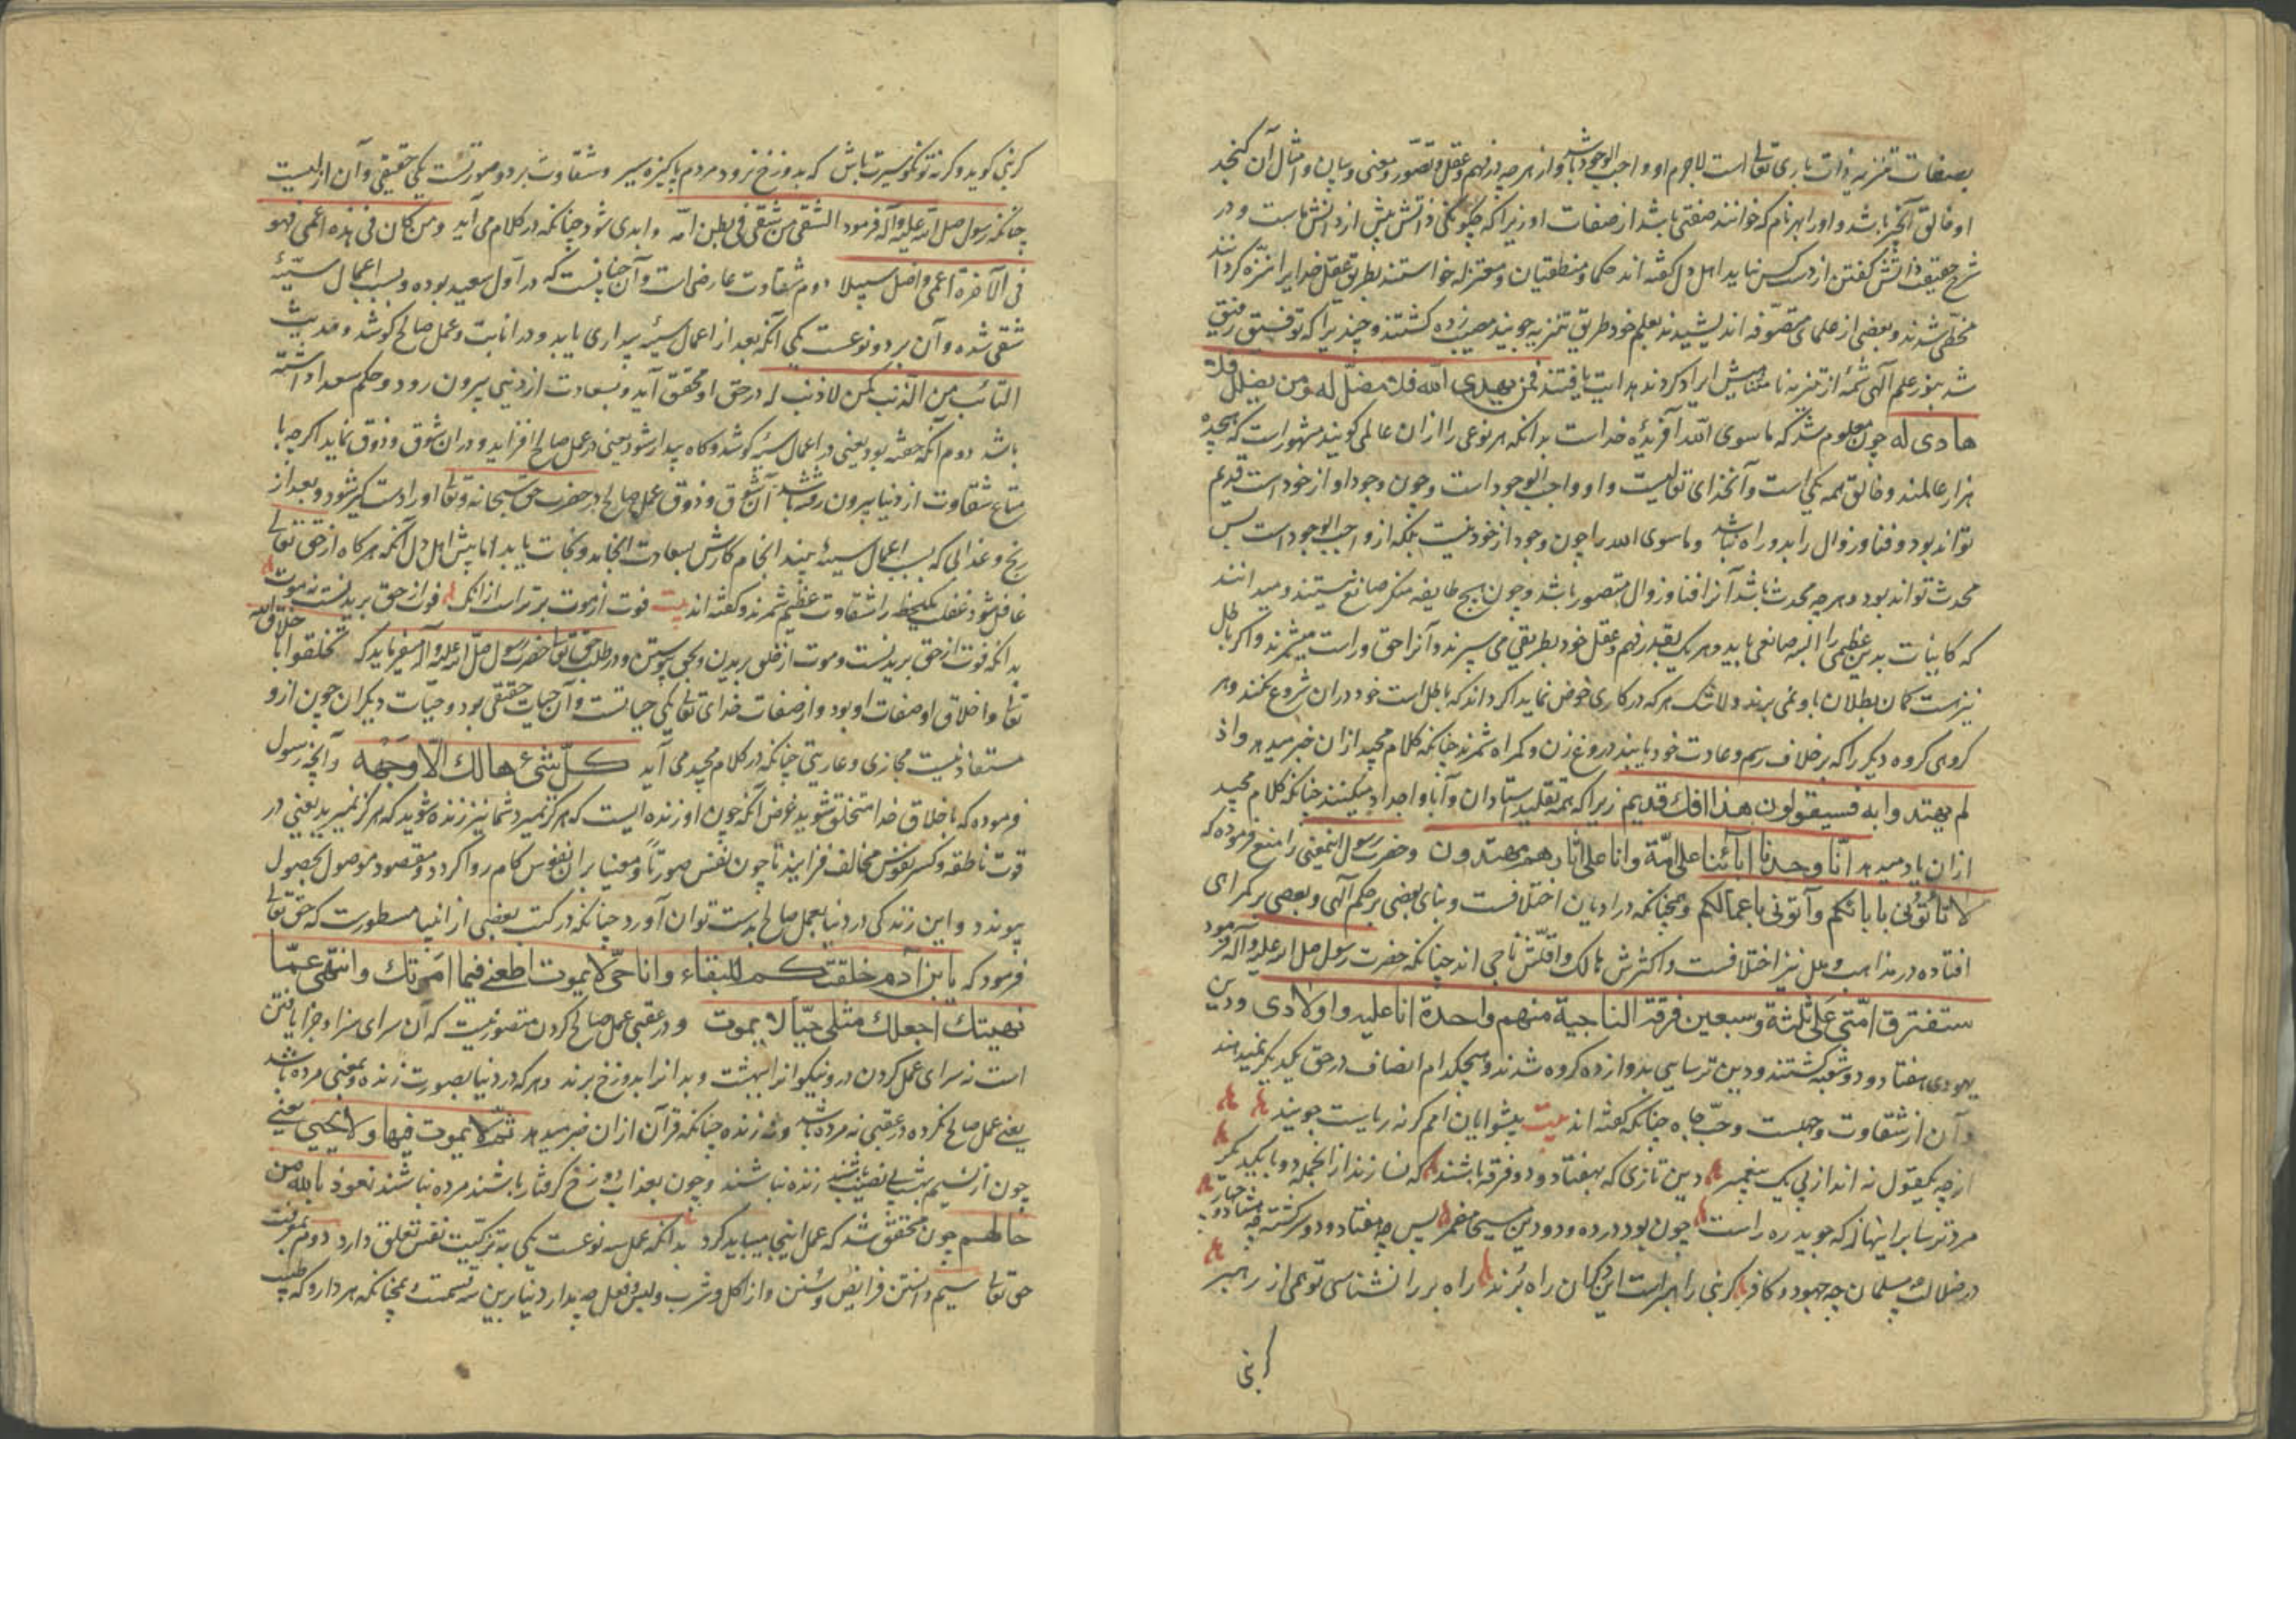 بصفات تنزیه ذات باری تعالی است لاجرم او واجب الوجود باشد و از هرچه در فهم و عقل و تصور و معنی و بیان و امثال آن گنجد
او خالق آنچیز باشد و او را بهر نام که خوانند صفتی باشد از صفات او زیرا که چگونگی ذاتش بیش از دانش ماست و در
شرح حقیقت ذاتش گفتن از دست کس نیاید اهل دل گفته اند حکما و منطقیان و معتزله خواستند بطریق عقل خدایرا منزه کردانند
مخطی شدند و بعضی از علمای متصوفه اندیشیدند بعلم خود طریق تنزیه جویند مصیب زده کشتند و چند یرا که توفیق رفیق
شد بنور علم آلهی شمه از تنزیه نامتناهیش ایراد کردند هدایت یافتند فمن یهدی الله فلا مضل له ومن یضلل فلا
هادی له چون معلوم شد که ماسوی الله آفریده خداست بدانکه هر نوعی را ازان عالمی کویند مشهور است که هجده
هزار عالمند و خالق همه یکی است و آن خدای تعالیست و او واجب الوجود است و چون وجود او از خود است قدیم
تواند بود و فنا و زوال را بدو راه نباشد و ماسوی الله را چون وجود از خود نیست بلکه از واجب الوجود است پس
محدث تواند بود و هرچه محدث باشد آنرا فنا و زوال متصور باشد و چون هیچ طایفه منکر صانع نیستند و میدانند
که کاینات بدین عظیمی را البته صانعی باید و هر یک بقدر فهم و عقل خود بطریقی می سپرند و آنرا حق و راست میشمرند و اکر باطل
نیز هست کمان بطلان باو نمی برند ولاشک هر که در کاری خوض نماید اکر داند که باطل است خود دران شروع نکند و هر
کروهی کروه دیکر را که برخلاف رسم و عادت خود یابند دروغ زن و کمراه شمرند چنانکه کلام مجید ازان خبر میدهد واذ
لم یهتدوا به فسیقولون هذا افک قدیم زیرا که همه تقلید استادان و آبا و اجداد میکنند چنانکه کلام مجید
ازان یاد میدهد انا وجدنا ابائنا علی امة وانا علی اثارهم مهتدون و حضرت رسول اینمعنی را منع فرموده که
لا تأتونی بابائکم وآتونی باعمالکم و همچنانکه در ادیان اختلافست و بنای بعضی بر حکم آلهی و بعضی بر کمراهی
افتاده در مذاهب و ملل نیز اختلافست و اکثرش هالک و اقلش ناجی اند چنانکه حضرت رسول صلی الله علیه وآله فرمود
ستفترق امتی علی ثلثة وسبعین فرقة الناجیة منهم واحدة انا علیه واولادی و دین
یهودی هفتاد و دو شعبه کشتند و دین ترسایی بدوازده کروه شدند و هیچکدام انصاف در حق یکدیکر نمیدهند
و آن از شقاوت و جهلست و حب جاه چنانکه گفته اند بیت پیشوایان امم کر نه ریاست جویند
از چه یکقول نه اند از پی یک پیغمبر دین تازی که بهفتاد و دو فرقه باشند که نسازند از انجمله دو با یکدیکر
مرد ترسا بر اینها نه که جوید ره راست چون بود در ده و دو دین مسیحا مضمر پس چه هفتاد و دو سرکشته چه هشتاد و چهار
در ضلالت چه مسلمان چه جهود و کافر کر نبی راهبر است این دکهان راه برند راه بر را نشناسی تو همی از رهبر
کر نبی
کر نبی کوید و کرنه تو نکو سیرت باش که بدوزخ نرود مردم پاکیزه سیر و شقاوت بر دو صورتست یکی حقیقی و آن ازلیست
چنانکه رسول صلی الله علیه وآله فرمود الشقی من شقی فی بطن امه و ابدی شود چنانکه در کلام می آید ومن کان فی هذه اعمی فهو
فی الآخرة اعمی واضل سبیلا دوم شقاوت عارضی است و آن چنانست که در اول سعید بوده و بسبب اعمال سیئه
شقی شده و آن بر دو نوعست یکی آنکه بعد از اعمال سیئه بیداری یابد و در انابت و عمل صالح کوشد و حدیث
التائب من الذنب کمن لا ذنب له در حق او محقق آید و بسعادت از دنیی بیرون رود و حکم سعدا داشته
باشد دوم آنکه خفته بود یعنی در اعمال سیئه کوشد و کاه بیدار شود یعنی در عمل صالح افزاید و دران شوق و ذوق نماید اکرچه با
متاع شقاوت از دنیا بیرون رفته باشد آن شوق و ذوق عمل صالح در حضرت حق سبحانه وتعالی او را دستکیر شود و بعد از
رنج و عذابی که بسبب اعمال سیئه بیند انجام کارش بسعادت انجامد و نجات یابد اما پیش اهل دل آنکه هر کاه از حق تعالی
غافل شود غفلت یک لحظه را شقاوت عظیم شمرند و کفته اند بیت فوت از موت برتر است ازانک فوت از حق بریدنست نه موت
بدانکه فوت از حق بریدنست و موت از خلق بریدن و بحق پیوستن و در طلب حق تعالی حضرت رسول صلی الله علیه وآله میفرماید که تخلقوا باخلاق الله
تعالی و اخلاق او صفات او بود و از صفات خدای تعالی یکی حیاتست و آن حیات حقیقی بود و حیات دیکران چون ازو
مستفاد نیست مجازی و عاریتی چنانکه در کلام مجید می آید کل شیء هالک الا وجهه و آنچه رسول
فرموده که باخلاق خدا متخلق شوید غرض آنکه چون او زنده ایست که هرکز نمیرد شما نیز زنده شوید که هرکز نمیرید یعنی در
قوت ناطقه و کسر نفوس مخالف فزایید تا چون نفس صورتا و معنیا بران نفوس کام روا کردد و مقصود موصول بحصول
پیوندد و این زندکی در دنیا بعمل صالح بدست توان آورد چنانکه در کتب بعضی از انبیا مسطورست که حق تعالی
فرمود که یا بن آدم خلقتکم للبقاء وانا حی لا یموت اطعنی فیما امرتک وانتهی عما
نهیتک اجعلک مثلی حیا لا یموت و در عقبی عمل صالح کردن متصور نیست که آن سرای سزا و جزا یافتن
است نه سرای عمل کردن درو نیکوانرا ببهشت و بدانرا بدوزخ برند و هر که در دنیا بصورت زنده و بمعنی مرده باشد
یعنی عمل صالح نکرده در عقبی نه مرده باشد و نه زنده چنانکه قرآن ازان خبر میدهد ثم لا یموت فیها ولا یحیی یعنی
چون از نسیم بهشت بی نصیب باشند زنده نباشند و چون بعذاب دوزخ کرفتار باشند مرده نباشند نعوذ بالله من
حالهم چون محقق شد که عمل اینجا میباید کرد بدانکه عمل سه نوعست یکی بتزکیت نفس تعلق دارد دوم بمعرفت
حق تعالی سیم دانستن فرایض و سنن و از اکل و شرب و لبس و فعل صید از دنیا برین سه قسمت همچنانکه هر دارو که طبیب